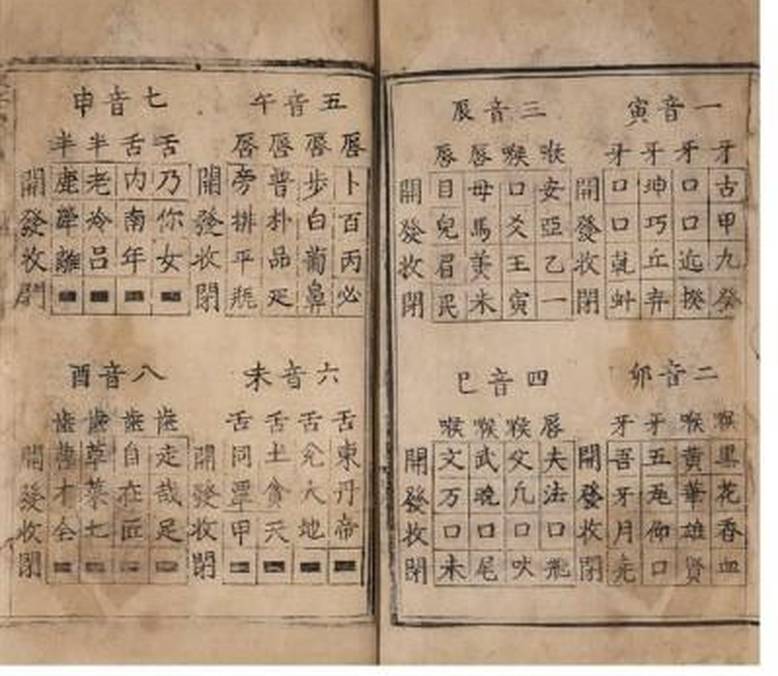 一音寅
牙牙牙牙
古口坤口開
甲口巧口發
九近丘乾收
癸揆弃虯閉
二音卯
喉喉牙牙
黑黃五吾開
花華瓦牙發
香雄仰月收
血賢口堯閉
三音辰
喉喉唇唇
安口母目開
亞爻馬皃發
乙王美眉收
一寅米民閉
四音巳
唇喉喉喉
夫父武文開
法凡晚万發
口口口口收
飛吠尾未閉
五音午
唇唇唇唇
卜步普旁開
百白朴排發
丙葡品平收
必鼻瓶閉
六音未
舌舌舌舌
東兌土同開
丹大貪覃發
帝地天甲收
閉
七音申
舌舌半半
乃內老鹿開
你南冷犖發
女年呂離收
閉
八音酉
齒齒齒齒
走自草開
哉在菜才發
足匠七全收
閉